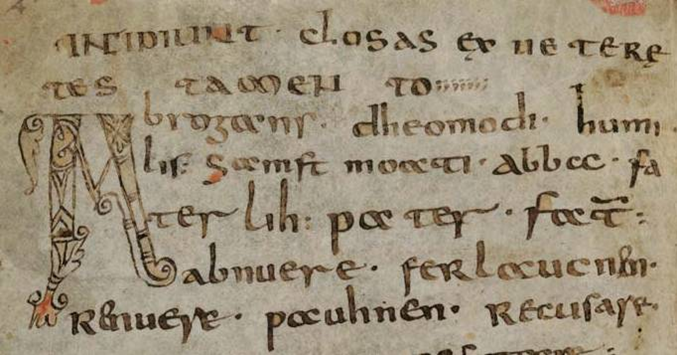 INCIPIUNT closas ex uetere
tes tamen to
Abrogans. dheomodi. humi
lis: samft moati. abba. fa
ter lih: pater. fat̄:
abnuere. ferlaucnen.
Renuere. pauhnen. Recusare.